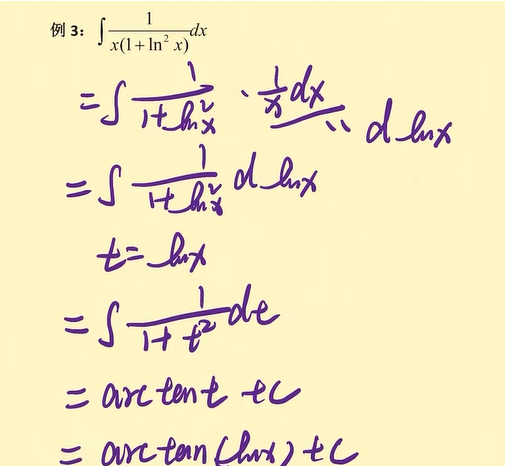 例 3: ∫ 1/(x(1+ln² x)) dx
= ∫ 1/(1+ln²x) · 1/x dx " d lnx
= ∫ 1/(1+ln²x) d lnx
t = lnx
= ∫ 1/(1+t²) dt
= arctan t + C
= arctan (lnx) + C